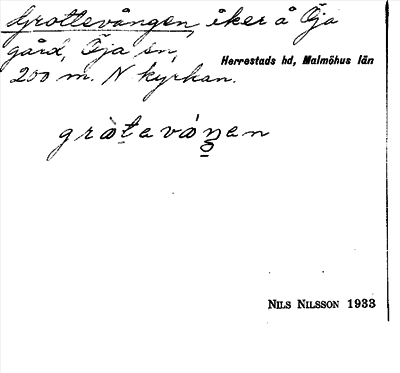 Grottevången, åker å Öja
gård, Öja sn,
Herrestads hd, Malmöhus län
200 m. N kyrkan.
gràt̲aváŋ̲an
NILS NILSSON 1933